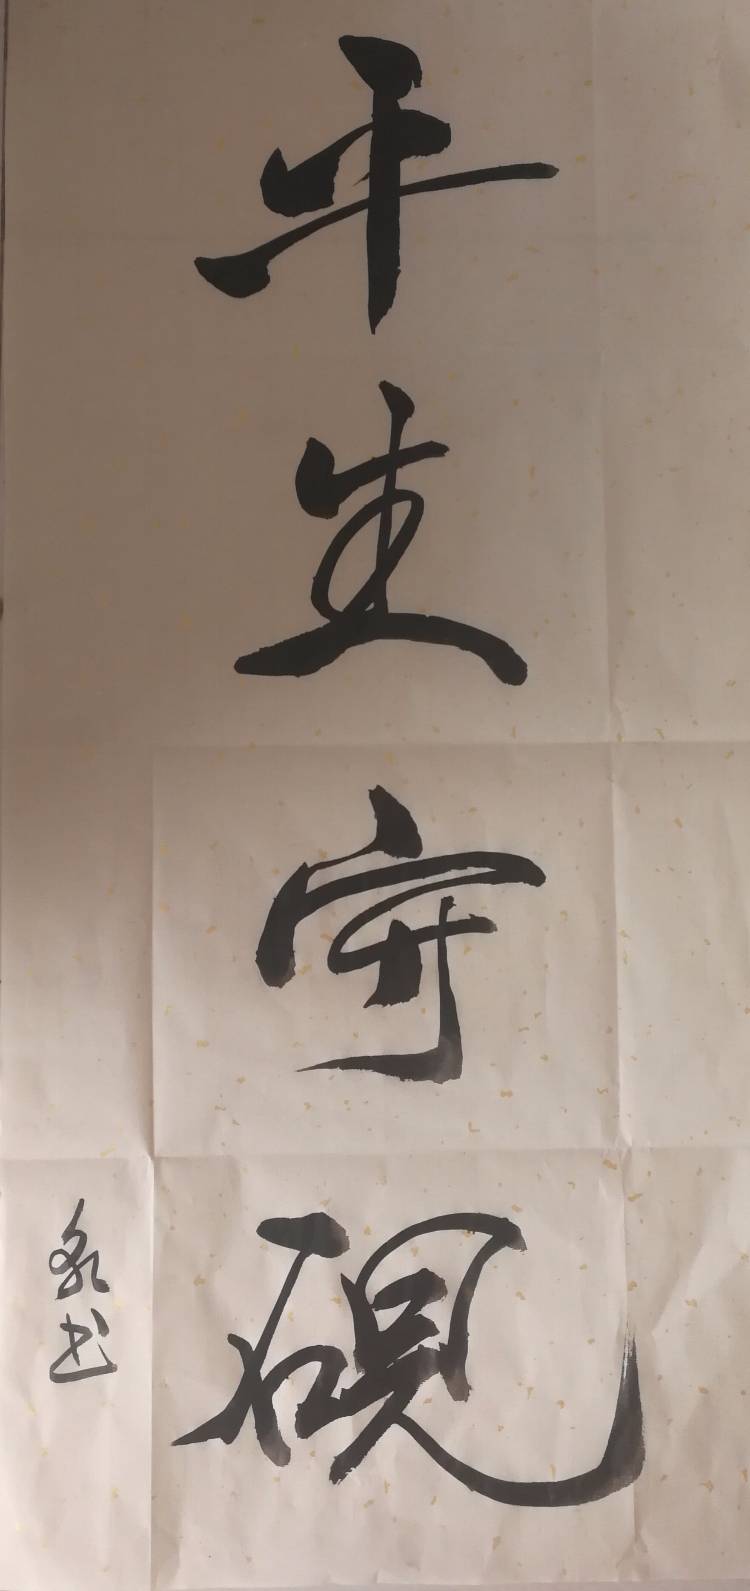 平生守砚
书